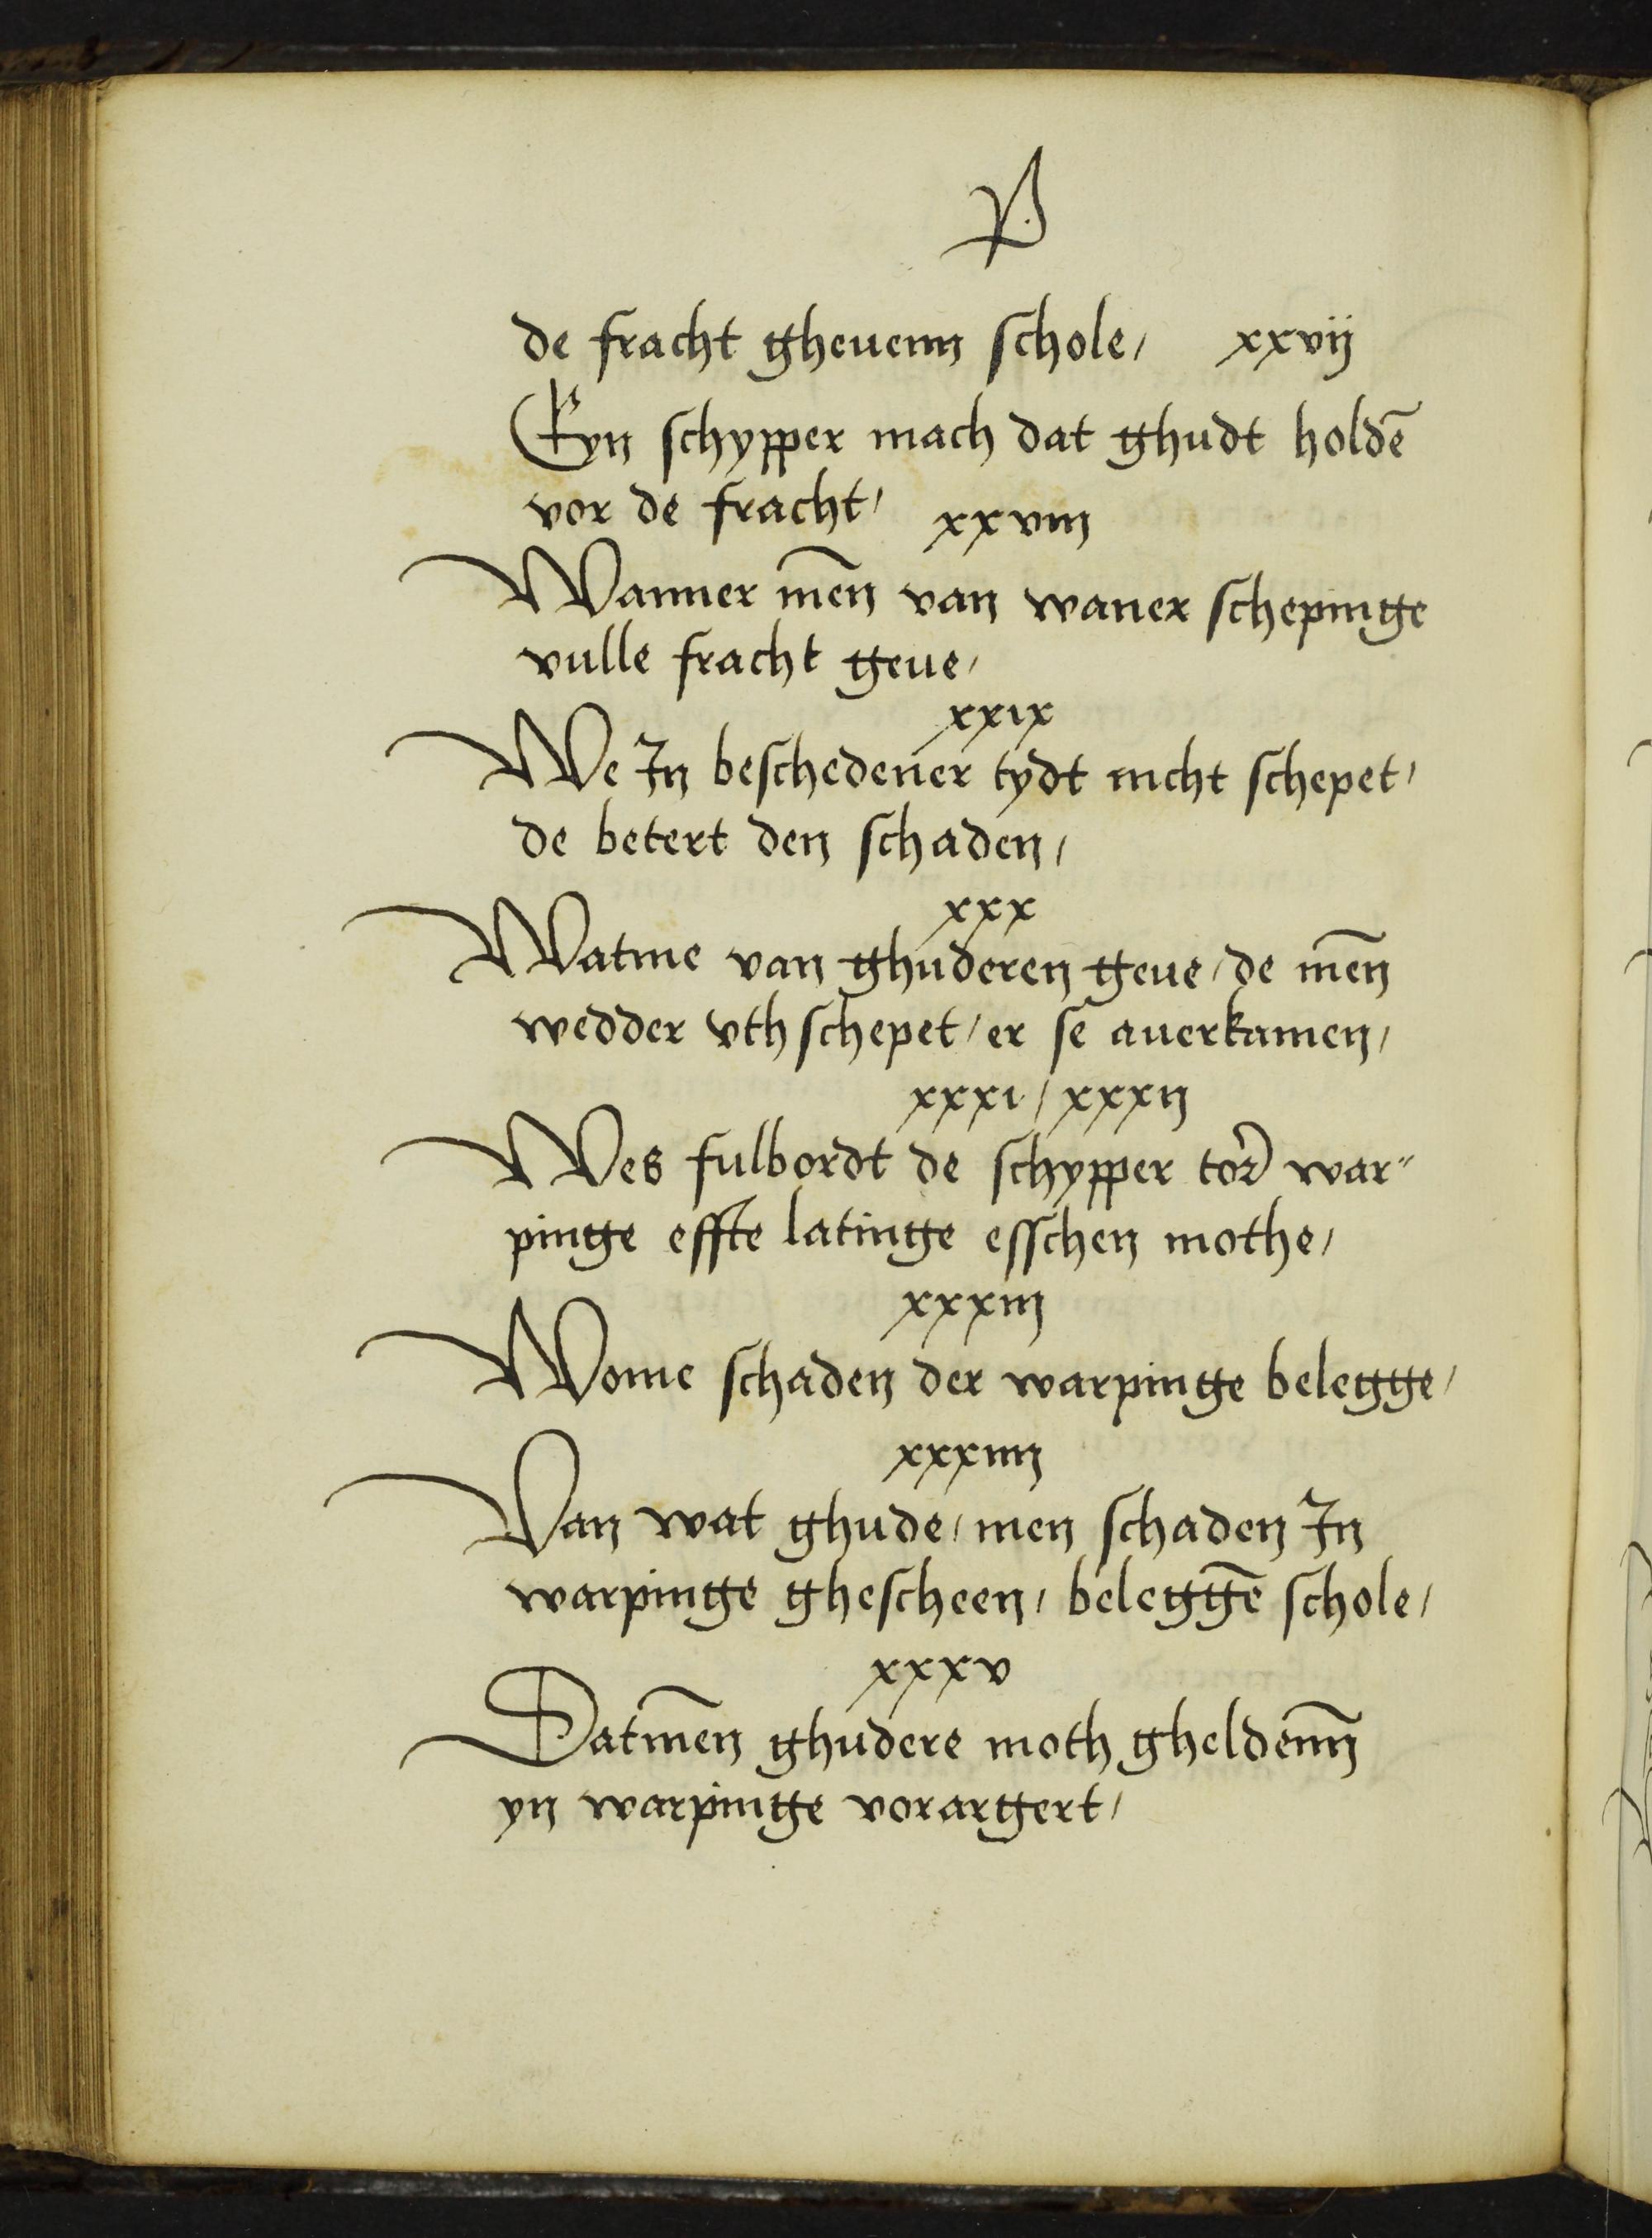 P
de fracht gheuenn schole / xxvij
Eyn schypper mach dat ghudt holdē
vor de fracht / xxviij
Wanner mēn van waner schepinge
vulle fracht geue /
xxix
We In beschedener tydt nicht schepet /
de betert den schaden /
xxx
Watme van ghuderen geue / de mēn
wedder vth schepet / er se auerkamen /
xxxi / xxxij
Wes fulbordt de schypper tor war"
pinge effte latinge esschen mothe /
xxxiij
Wome schaden der warpinge belegge /
xxxiiij
Van wat ghude / men schaden In
warpinge ghescheen / beleggē schole /
xxxv
Datmēn ghudere moth gheldenn̄
yn warpinge vorargert /